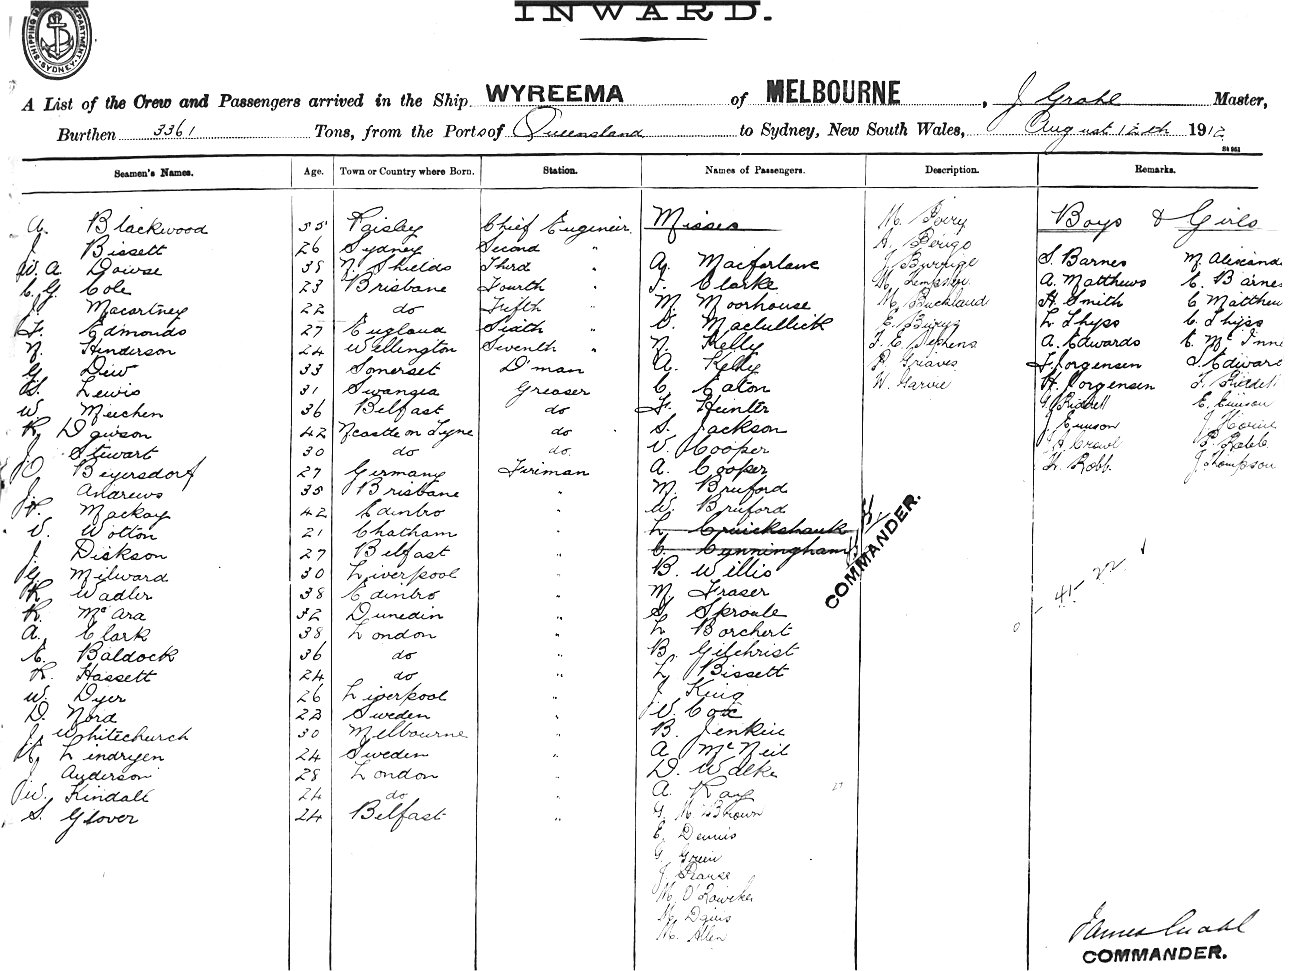 INWARD.
SHIPPING DEPARTMENT SYDNEY
A List of the Crew and Passengers arrived in the Ship WYREEMA of MELBOURNE, J Grahl Master,
Burthen 3361 Tons, from the Ports of Queensland to Sydney, New South Wales, August 12th 1912
Seamen's Names. Age. Town or Country where Born. Station. Names of Passengers. Description. Remarks.
A. Blackwood 55 Paisley Chief Engineer
J. Bissett 26 Sydney Second "
W. A Dowse 38 N. Shields Third "
C. G. Cole 23 Brisbane Fourth "
J. Macartney 22 do Fifth
F. Edmonds 27 England Sixth "
N. Henderson 24 Wellington Seventh "
G. Dew 33 Somerset D'man
Lewis 31 Swansea Greaser
W. Meichen 36 Belfast do
R. Dawson 42 Ncastle on Tyne do
J. Stewart 30 do do
Beyersdorf 27 Germany Fireman
J. Andrews 35 Brisbane "
Mackay 42 Edinbro "
W. Wotton 21 Chatham "
J. Dickson 27 Belfast "
G. Milward 30 Liverpool "
R. Wadler 38 Edinbro "
R. McAra 32 Dunedin "
A. Clark 38 London "
Baldock 36 do "
R. Hassett 24 do "
W. Dyer 26 Liverpool "
D. Nord 22 Sweden "
J. Whitechurch 30 Melbourne "
Lindryen 24 Sweden "
J. Anderson 28 London "
W. Kindall 24 do "
S. Glover 24 Belfast "
Misses
A. Macfarlane
F. Clarke
M Moorhouse
D. Macullick
N. Kelly
A. Kelly
C. Eaton
F. Hunter
S. Jackson
V. Cooper
A. Cooper
M. Bruford
W. Bruford
L. Cruickshank
C. Cunningham
B. Willis
M. Fraser
S. Sproule
L. Borchert
B. Gilchrist
L. Bissett
J. King
W. Cox
B. Jenkin
A. McNeil
D. Walke
A. Kay
G. M. Brown
E. Dennis
G. Green
J. Pearse
M. Davis
M. Allen
M. Perry
J. Burridge
M. Dempsey
M. Buckland
F. E. Stephens
P. Grieves
W. Garvie
COMMANDER.
Boys & Girls
S. Barnes M. Alexand
A. Matthews E. Barnes
H. Smith C Matthew
L. Thyss C. Thyss
A. Edwards E. McInne
J. Jorgensen S. Edward
H. Jorgensen F. Riddell
G. Riddell E. Ewison
J. Ewison
H. Robb J. Thompson
41- 22
James Grahl
COMMANDER.